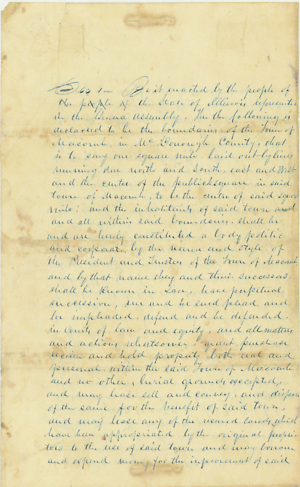 Sec 1st Be it enacted by the people of
the people of the State of Illinois represented
in the General Assembly. That the following is
declared to be the boundaries of the Town of
Macomb, in Mc Donough County, that
is to say one square mile, laid out by lines
running due north and South, east and West
and the center of the public square in said
town of Macomb, to be the center of said square
mile: and the inhabitants of said town and
and all within said boundaries shall be
and are hereby constituted a body politic
and corporate, by the name and style of
the President and Trustees of the Town of Macomb
and by that name they and their successors
shall be known in Law, have perpetual
succession, sue and be sued plead and
be impleaded, defend and be defended
in Courts of law and equity, and all matters
and actions whatsoever: grant purchase
receive and hold property both real and
personal within the said Town of Macomb
and no other, burial grounds excepted,
and may lease sell and convey, and dispose
of the same, for the benefit of said town,
and may lease any of the reserved lands which
have been appropriated by the original proprie
tors to the use of said town and may borrow
and expend money for the improvement of said